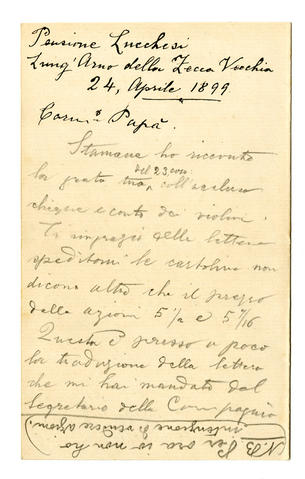 Pensione Lucchesi
Lung'Arno della Zecca Vecchia
24, Aprile 1899
Carmo Papà.
Stamane ho ricevuto
del 23 corr.
la grata tua, coll'accluso
chèque e conto dei violini.
Ti ringrazio delle lettere
speditemi le cartoline non
dicono altro che il prezzo
delle azioni 5 1/2 e 5 9/16
Questa è presso a poco
la traduzione della lettera
che mi hai mandato del
Segretario della Compagnia
(N.B. Per ora io non ho
intenzione di vendere azioni).